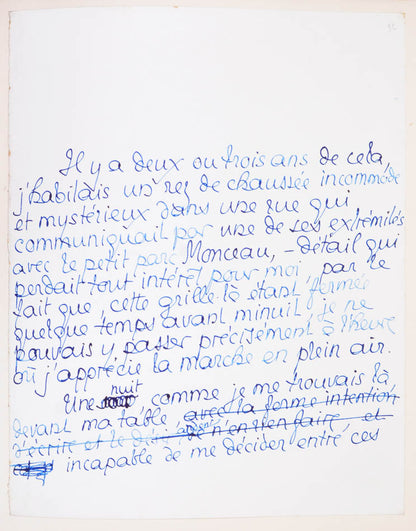 Il y a deux ou trois ans de cela,
j'habitais un rez de chaussée incommode
et mystérieux dans une rue qui
communiquait par une de ses extrémités
avec le petit parc Monceau, – détail qui
perdait tout intérêt pour moi, par le
fait que, cette grille là étant fermée
quelque temps avant minuit, je ne
pouvais y passer précisément à l'heure
où j'apprécie la marche en plein air.
nuit
Une comme je me trouvais là
devant ma table avec la ferme intention
d'écrire et le désir de n'en rien faire, et
incapable de me décider entre ces